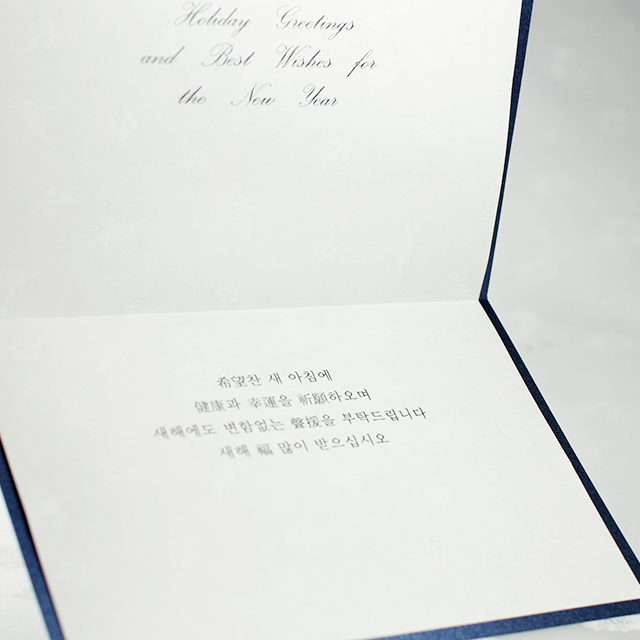 Holiday Greetings
and Best Wishes for
the New Year
希望찬 새 아침에
健康과 幸運을 祈願하오며
새해에도 변함없는 聲援을 부탁드립니다
새해 福 많이 받으십시오